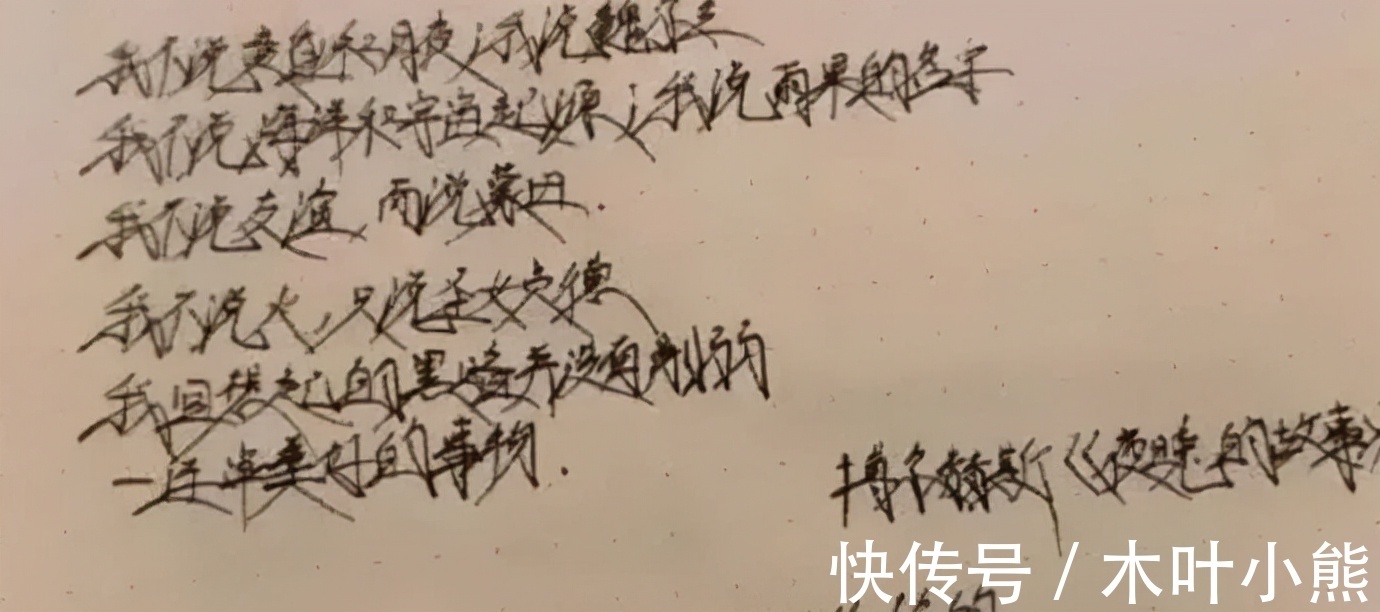 我不说黄昏和月夜;我说魏尔兰
我不说海洋和宇宙起源;我说雨果的名字
我不说友谊,而说蒙田.
我不说火,只说圣女贞德
我回想起的黑暗并没有削弱
一连串美好的事物.
博尔赫斯《夜晚的故事》
快传号/木叶小熊